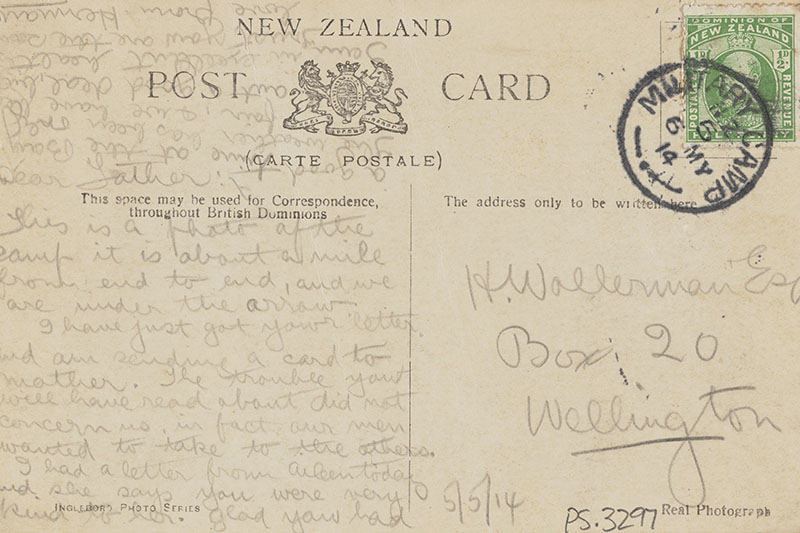 NEW ZEALAND
POST CARD
(CARTE POSTALE)
This space may be used for Correspondence,
throughout British Dominions
The address only to be written here
DOMINION OF
NEW ZEALAND
½D
½D
POSTAGE
REVENUE
MILITARY CAMP
6 MY
14
Dear Father:
This is a photo of the
camp it is about a mile
from end to end, and we
are under the arrow
I have just got your letter.
and am sending a card to
mother. The trouble you
will have read about did not
concern us, in fact our men
wanted to take to the others.
I had a letter from Aileen today
and she says you were very
kind to her. glad you had
a good time at the
The weather has been
fair, we have
excellent health
you are the same
love from Herman
H. Wollerman Esq
Box 20
Wellington
5/5/14
PS.3297
INGLEBORO PHOTO SERIES
Real Photograph